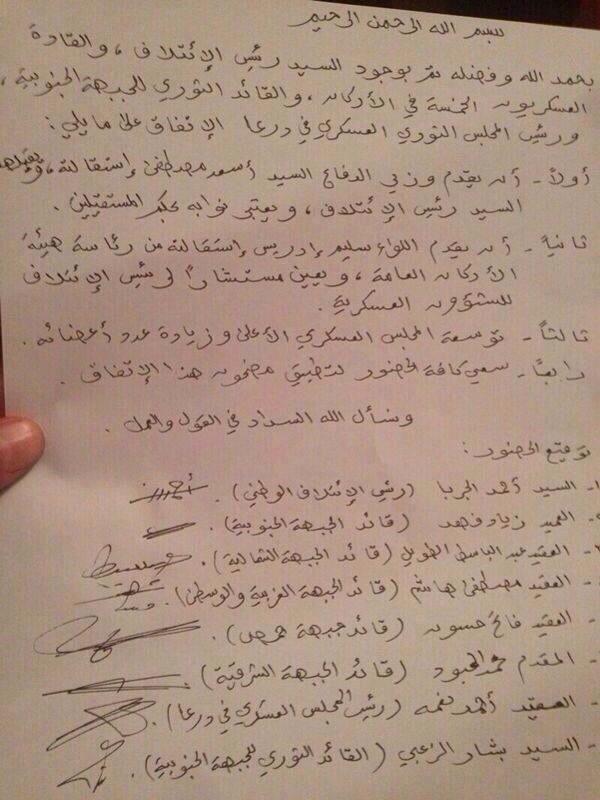 بسم الله الرحمن الرحيم
بحمد الله وفضله تم بوجود السيد رئيس الإئتلاف، والقادة
العسكريون الخمسة في الأركان، والقائد الثوري للجبهة الجنوبية،
ورئيس المجلس الثوري العسكري في درعا الإتفاق على ما يلي:
أولاً - أن يقدم وزير الدفاع السيد أسعد مصطفى إستقالته، ويقبلها
السيد رئيس الإئتلاف، ويعتبر نوابه بحكم المستقيلين.
ثانياً - أن يقدم اللواء سليم إدريس إستقالته من رئاسة هيئة
الأركان العامة، ويعين مستشاراً لرئيس الإئتلاف
للشؤون العسكرية.
ثالثاً - توسعة المجلس العسكري الأعلى وزيادة عدد أعضائه.
رابعاً - سعي كافة الحضور لتطبيق مضمون هذا الإتفاق.
ونسأل الله السداد في القول والعمل.
توقيع الحضور:
١- السيد أحمد الجربا (رئيس الإئتلاف الوطني).
العميد زياد فهد (قائد الجبهة الجنوبية).
- العقيد عبد الباسط الطويل (قائد الجبهة الشمالية).
- العقيد مصطفى هاشم (قائد الجبهة الغربية والوسطى).
- العقيد فاتح حسون (قائد جبهة حمص).
- المقدم محمد العبود (قائد الجبهة الشرقية).
- العقيد أحمد نعمه (رئيس المجلس العسكري في درعا).
- السيد بشار الزعبي (القائد الثوري للجبهة الجنوبية).